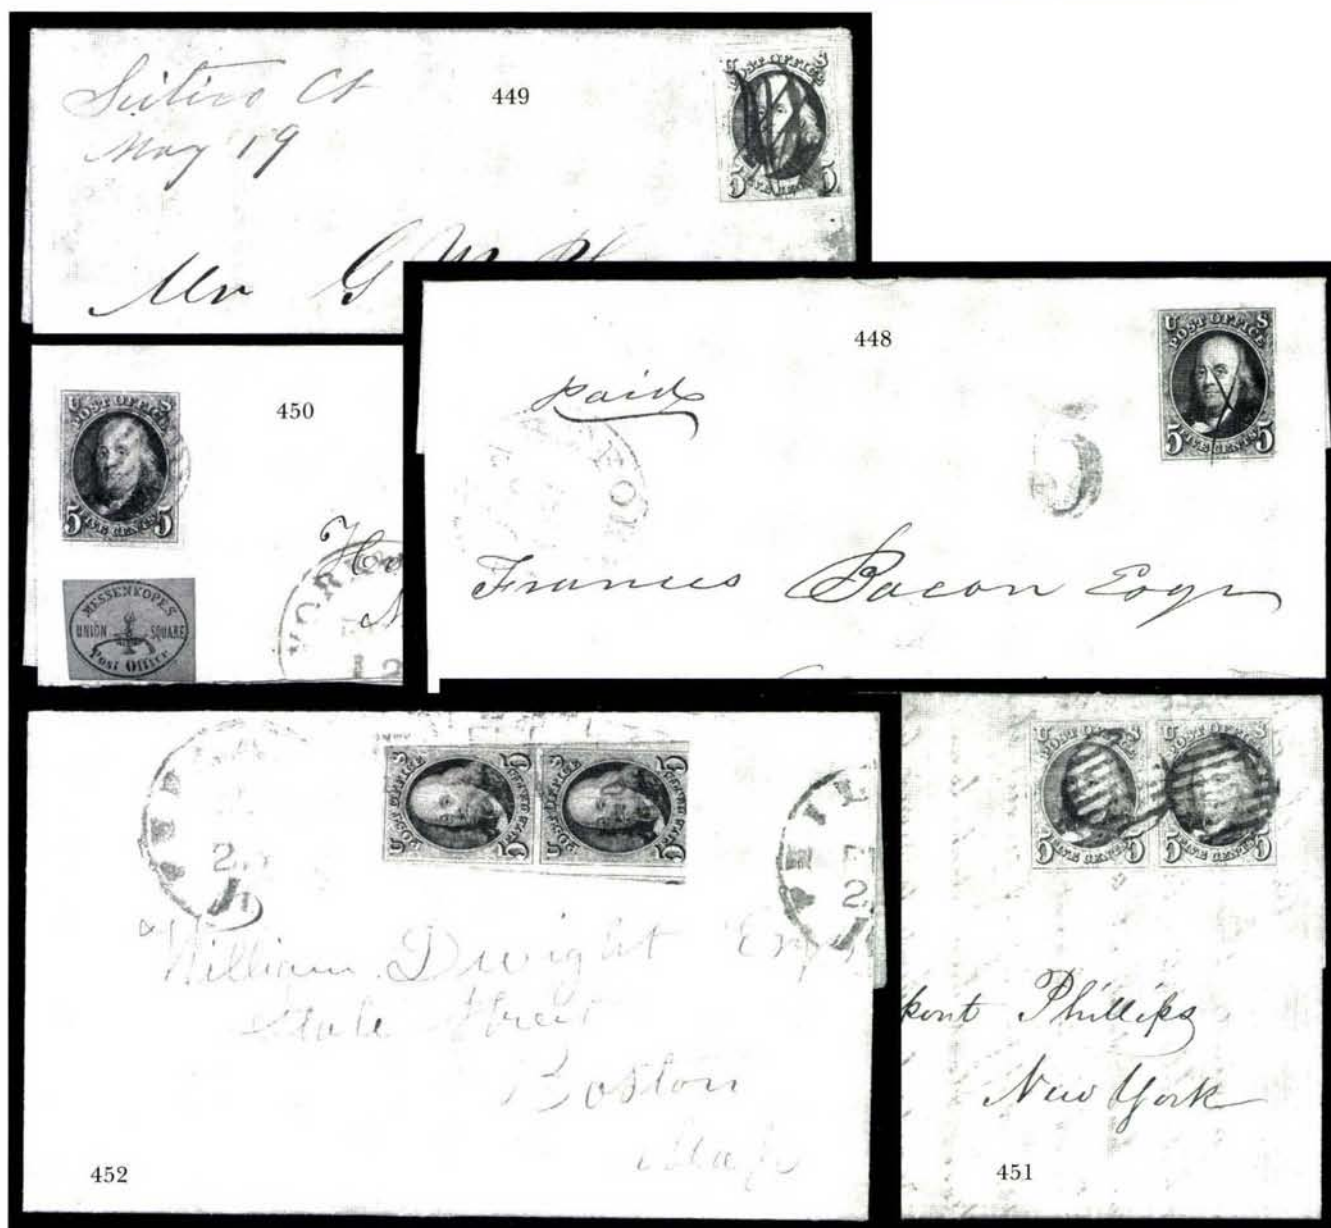 Scitico Ct
May 19
449
U S
POST OFFICE
5 FIVE CENTS 5
Mr G
450
U S
POST OFFICE
5 FIVE CENTS 5
MESSENKOPES
UNION SQUARE
Post Office
YORK
2
448
U S
POST OFFICE
5 FIVE CENTS 5
Paid
5
Frances Bacon Esqr
U S
POST OFFICE
5 FIVE CENTS 5
U S
POST OFFICE
5 FIVE CENTS 5
William Dwight Esq
State Street
Boston
Mass
452
U S
POST OFFICE
5 FIVE CENTS 5
U S
POST OFFICE
5 FIVE CENTS 5
pont Phillips
New York
451